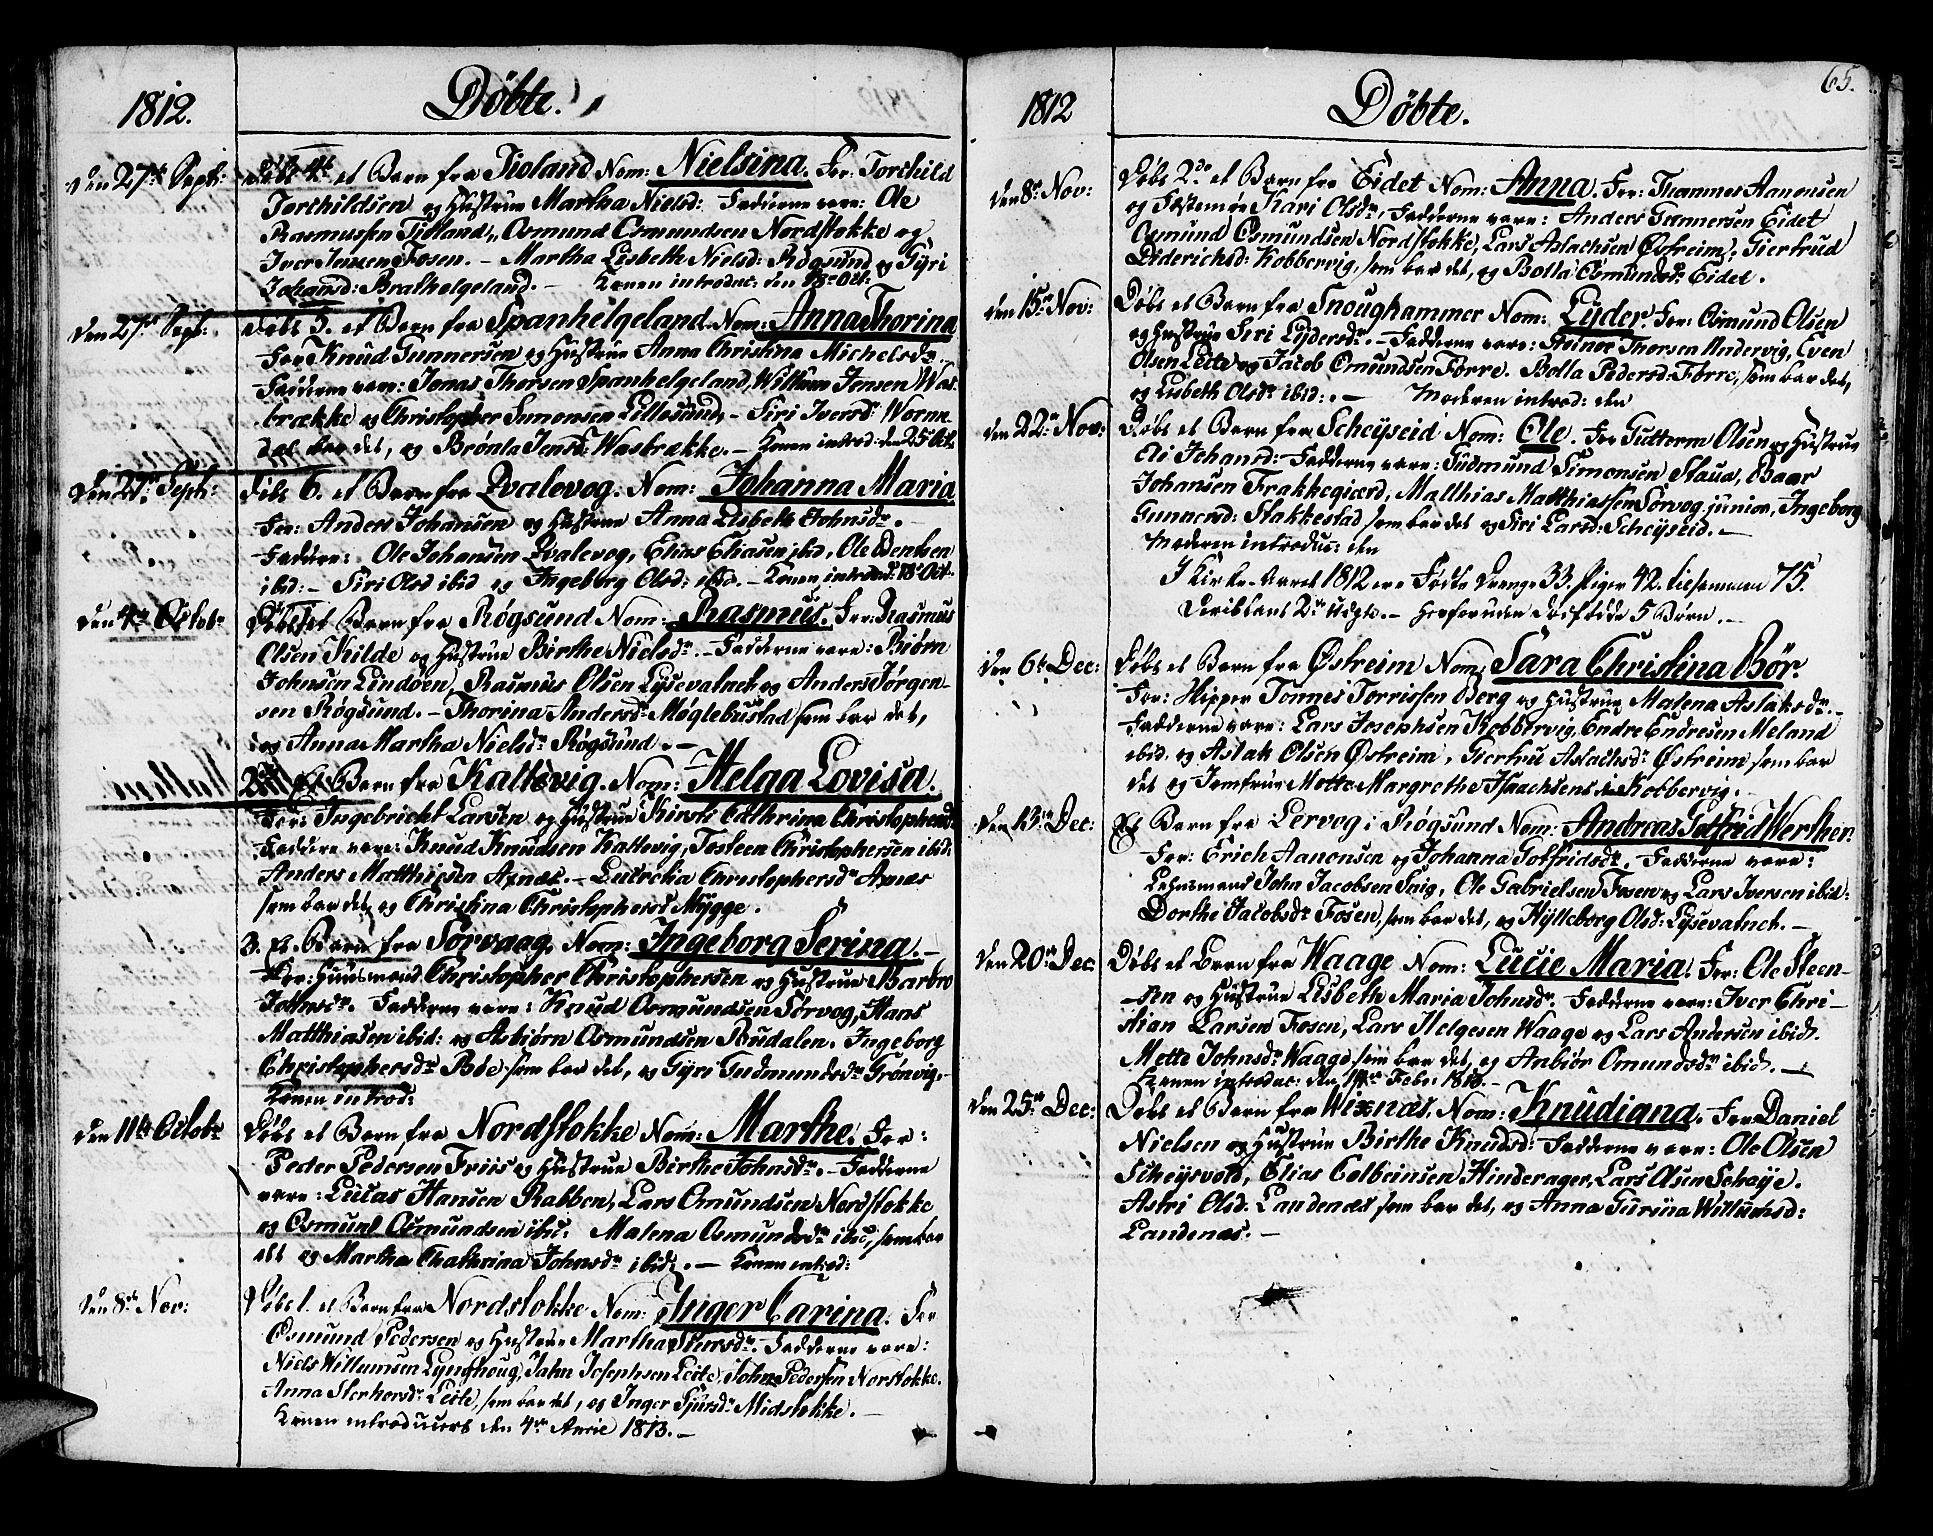 1812.
Döbte.
den 27de Sept:
Döbt 4de et Barn fra Tioland Nom: Nielsina. For: Torchild
Torchildsen og Hustrue Martha Nielsd: Fadderne vare: Ole
Rasmussen Tioland, Osmund Osmundsen Nordstokke og
Iver Jensen Fosen. – Martha Lisbeth Nielsd: Røgsund og Gyri
Johansd: Bralhelgeland. – Konen introduc: den 18de Oct:
den 27de Sept:
Döbt 5. et Barn fra Spanhelgeland Nom: Anna Thorina
For Knud Gunnersen og Hustrue Anna Christina Michelsdr.
Fadderne vare: Jonas Thorsen Spanhelgeland, Willum Jensen Was-
brække og Christopher Simonsen Lillesund, – Siri Iversdr Worne-
dal bar det, og Brønla Jensd: Wasbrække. – Konen introd: den 25 Oct.
den 27de Sept:
Döbt 6. et Barn fra Qvalevog. Nom: Johanna Maria
For: Anders Johansen og Hustrue Anna Lisbeth Johnsdr. –
Faddere: Ole Johansen Qvalevog, Elias Eliasen ibid, Ole Bentsen
ibid: – Siri Olsd ibid og Ingeborg Olsd: ibid. – Konen introd: 18de Oct.
den 4de Octobr
Döbt et Barn fra Røgsund Nom: Rasmus. For: Rasmus
Olsen Kilde og Hustrue Birthe Nielsdr. – Fadderne vare: Biørn
Johnsen Lindøen, Rasmus Olsen Lysevatnet og Anders Jørgen-
sen Røgsund. – Thorina Andersdr Møglebustad som bar det,
og Anna Martha Nielsdr Røgsund. –
2det Et Barn fra Kaltevig. Nom: Helga Lovisa.
For: Ingebricht Larsen og Hustrue Kirsti Cathrina Christophersd:
Faddere vare: Knud Knudsen Kaltevig, Tosteen Christophersen ibid:
Anders Matthissen Axnæs. – Lucretia Christophersdr Axnæs
som bar det, og Christina Christophersd Mygge.
3. Et Barn fra Sørvaag Nom: Ingeborg Serina. –
For: Huusmand Christopher Christophersen og Hustrue Barbro
Johnsdr. Fadderne vare: Knud Osmundsen Sørvog, Hans
Matthiasen ibid: og Asbiørn Osmundsen Budalen. Ingeborg
Christophersdr Bøe som bar det, og Gyri Gudmundsdr Grønvig. –
Konen introd:
den 11te Octobr
Döbt et Barn fra Nordstokke Nom: Marthe. For:
Peder Pedersen Friis og Hustrue Birthe Johnsdr. – Fadderne
vare: Lucas Hansen Rabben, Lars Osmundsen Nordstokke
og Osmund Osmundsen ibid: Malena Osmundsdr ibid, som bar
det og Martha Chathrina Johnsdr ibid. – Konen introd:
den 8de Nov:
Döbt 1. et Barn fra Nordstokke Nom: Inger Carina. For
Osmund Pedersen og Hustrue Martha Siursdr. Fadderne vare:
Niels Willumsen Lynghoug, Jahn Josephsen Leite, John Pedersen Norstokke.
Anna Sterkorsdr Leite, som bar det, og Inger Sjursdr Midstokke. –
Konen introduceret den 4de April 1813. –
65.
1812
Döbte.
den 8de Nov:
Döbt 2de et Barn fra Eidet Nom: Anna. For: Thommes Aanonsen
og Festemøe Kari Olsdr. Fadderne vare: Anders Gunnersen Eidet
Osmund Osmundsen Nordstokke, Lars Aslachsen Østreim, Giertrud
Diderichsd: Kobbervig, som bar det, og Bolla Osmundsdr Eidet.
den 15de Nov:
Döbt et Barn fra Snoughammer Nom: Lyder. For: Osmund Olsen
og Hustrue Siri Lydersdr. – Fadderne vare: Asinor Thorsen Andervig, Even
Olsen Leite og Jacob Osmundsen Førre. Bolla Pedersd: Førre, som bar det,
og Lisbeth Olsdr ibid: – Moderen introd: den
den 22de Nov:
Döbt et Barn fra Scheyseid Nom: Ole. For Gutterm Olsen og Hustrue
Eli Johansd: Fadderne vare: Gudmund Simonsen Staua, Baar
Johansen Frakkegierd, Matthias Matthiassen Sørvog junior, Ingeborg
Gunnersd: Stakkestad som bar det og Siri Larsd: Scheyseid. –
Moderen introduc: den
I Kirke-Aaret 1812 ere Fødte Drenge 33, Piger 42. tilsammen 75.
Deriblant 2de uægte. – Herforuden dødfødde 5 Børn. –
den 6te Dec:
Döbt et Barn fra Østreim Nom: Sara Christina Bør.
For: Skipper Tønnes Torrissen Berg og Hustrue Malena Aslaksdr. –
Fadderne vare: Lars Josephsen Kobbervig, Endre Endresen Meland
ibid. og Aslak Olsen Østreim, Giertru Aslachsdr Østreim som bar
det og Jomfrue Motte Margrethe Isaachsens i Kobbervig. –
den 13de Dec:
Et Barn fra Lervog i Røgsund Nom: Andreas Gotfrid Werther.
For: Erich Aanonsen og Johanna Gotfridsdr. Fadderne vare:
Lehnsmand John Jacobsen Snig, Ole Gabrielsen Fosen og Lars Iversen ibid:
Dorthe Jacobsdr Fosen, som bar det, og Hylleborg Olsd: Lysevatnet. –
den 20de Dec:
Döbt et Barn fra Waage Nom: Lucie Maria. For: Ole Steen-
sen og Hustrue Lisbeth Maria Johnsdr. Fadderne vare: Iver Chri-
stian Larsen Fosen, Lars Helgesen Waage og Lars Andersen ibid.
Mette Johnsdr Waage som bar det, og Anbiør Omundsdr ibid. –
Konen introduc: den 14de Febr: 1813. –
den 25de Dec:
Döbt et Barn fra Wixnæs. Nom: Knudiana. For Daniel
Nielsen og Hustrue Birthe Knudsd: Fadderne vare: Ole Olsen
Scheysvold, Elias Colbeinsen Hinderager, Lars Olsen Scheye.
Astri Olsd: Landenæs som bar det, og Anna Gurina Willumsd:
Landenæs. –